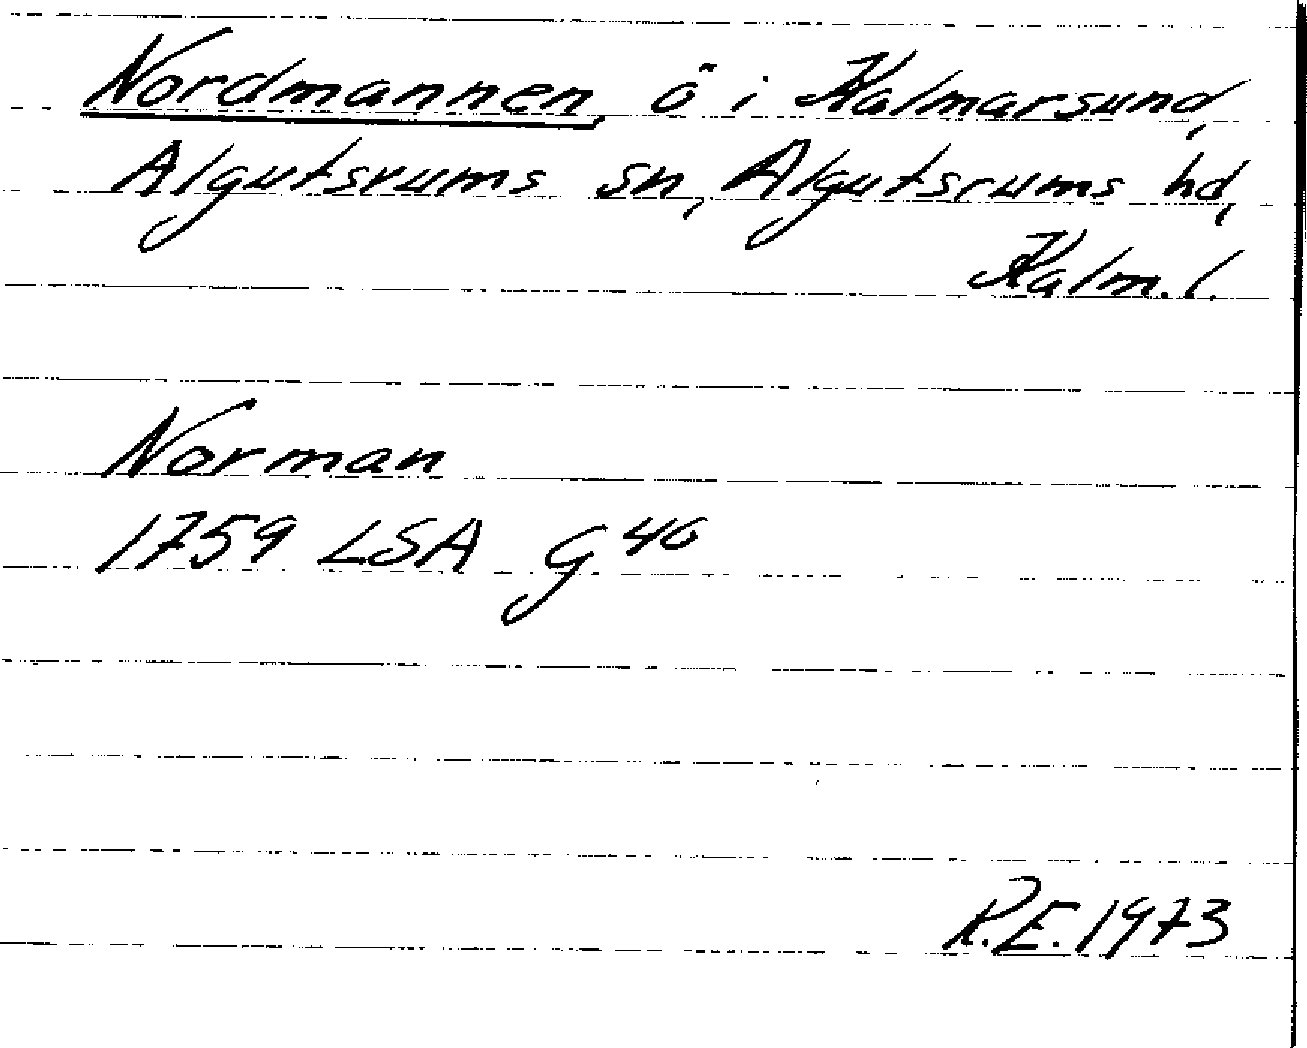 Nordmannen, ö i Kalmarsund,
Algutsrums sn, Algutsrums hd,
Kalm. l.
Norman
1759 LSA G 46
R.E. 1973